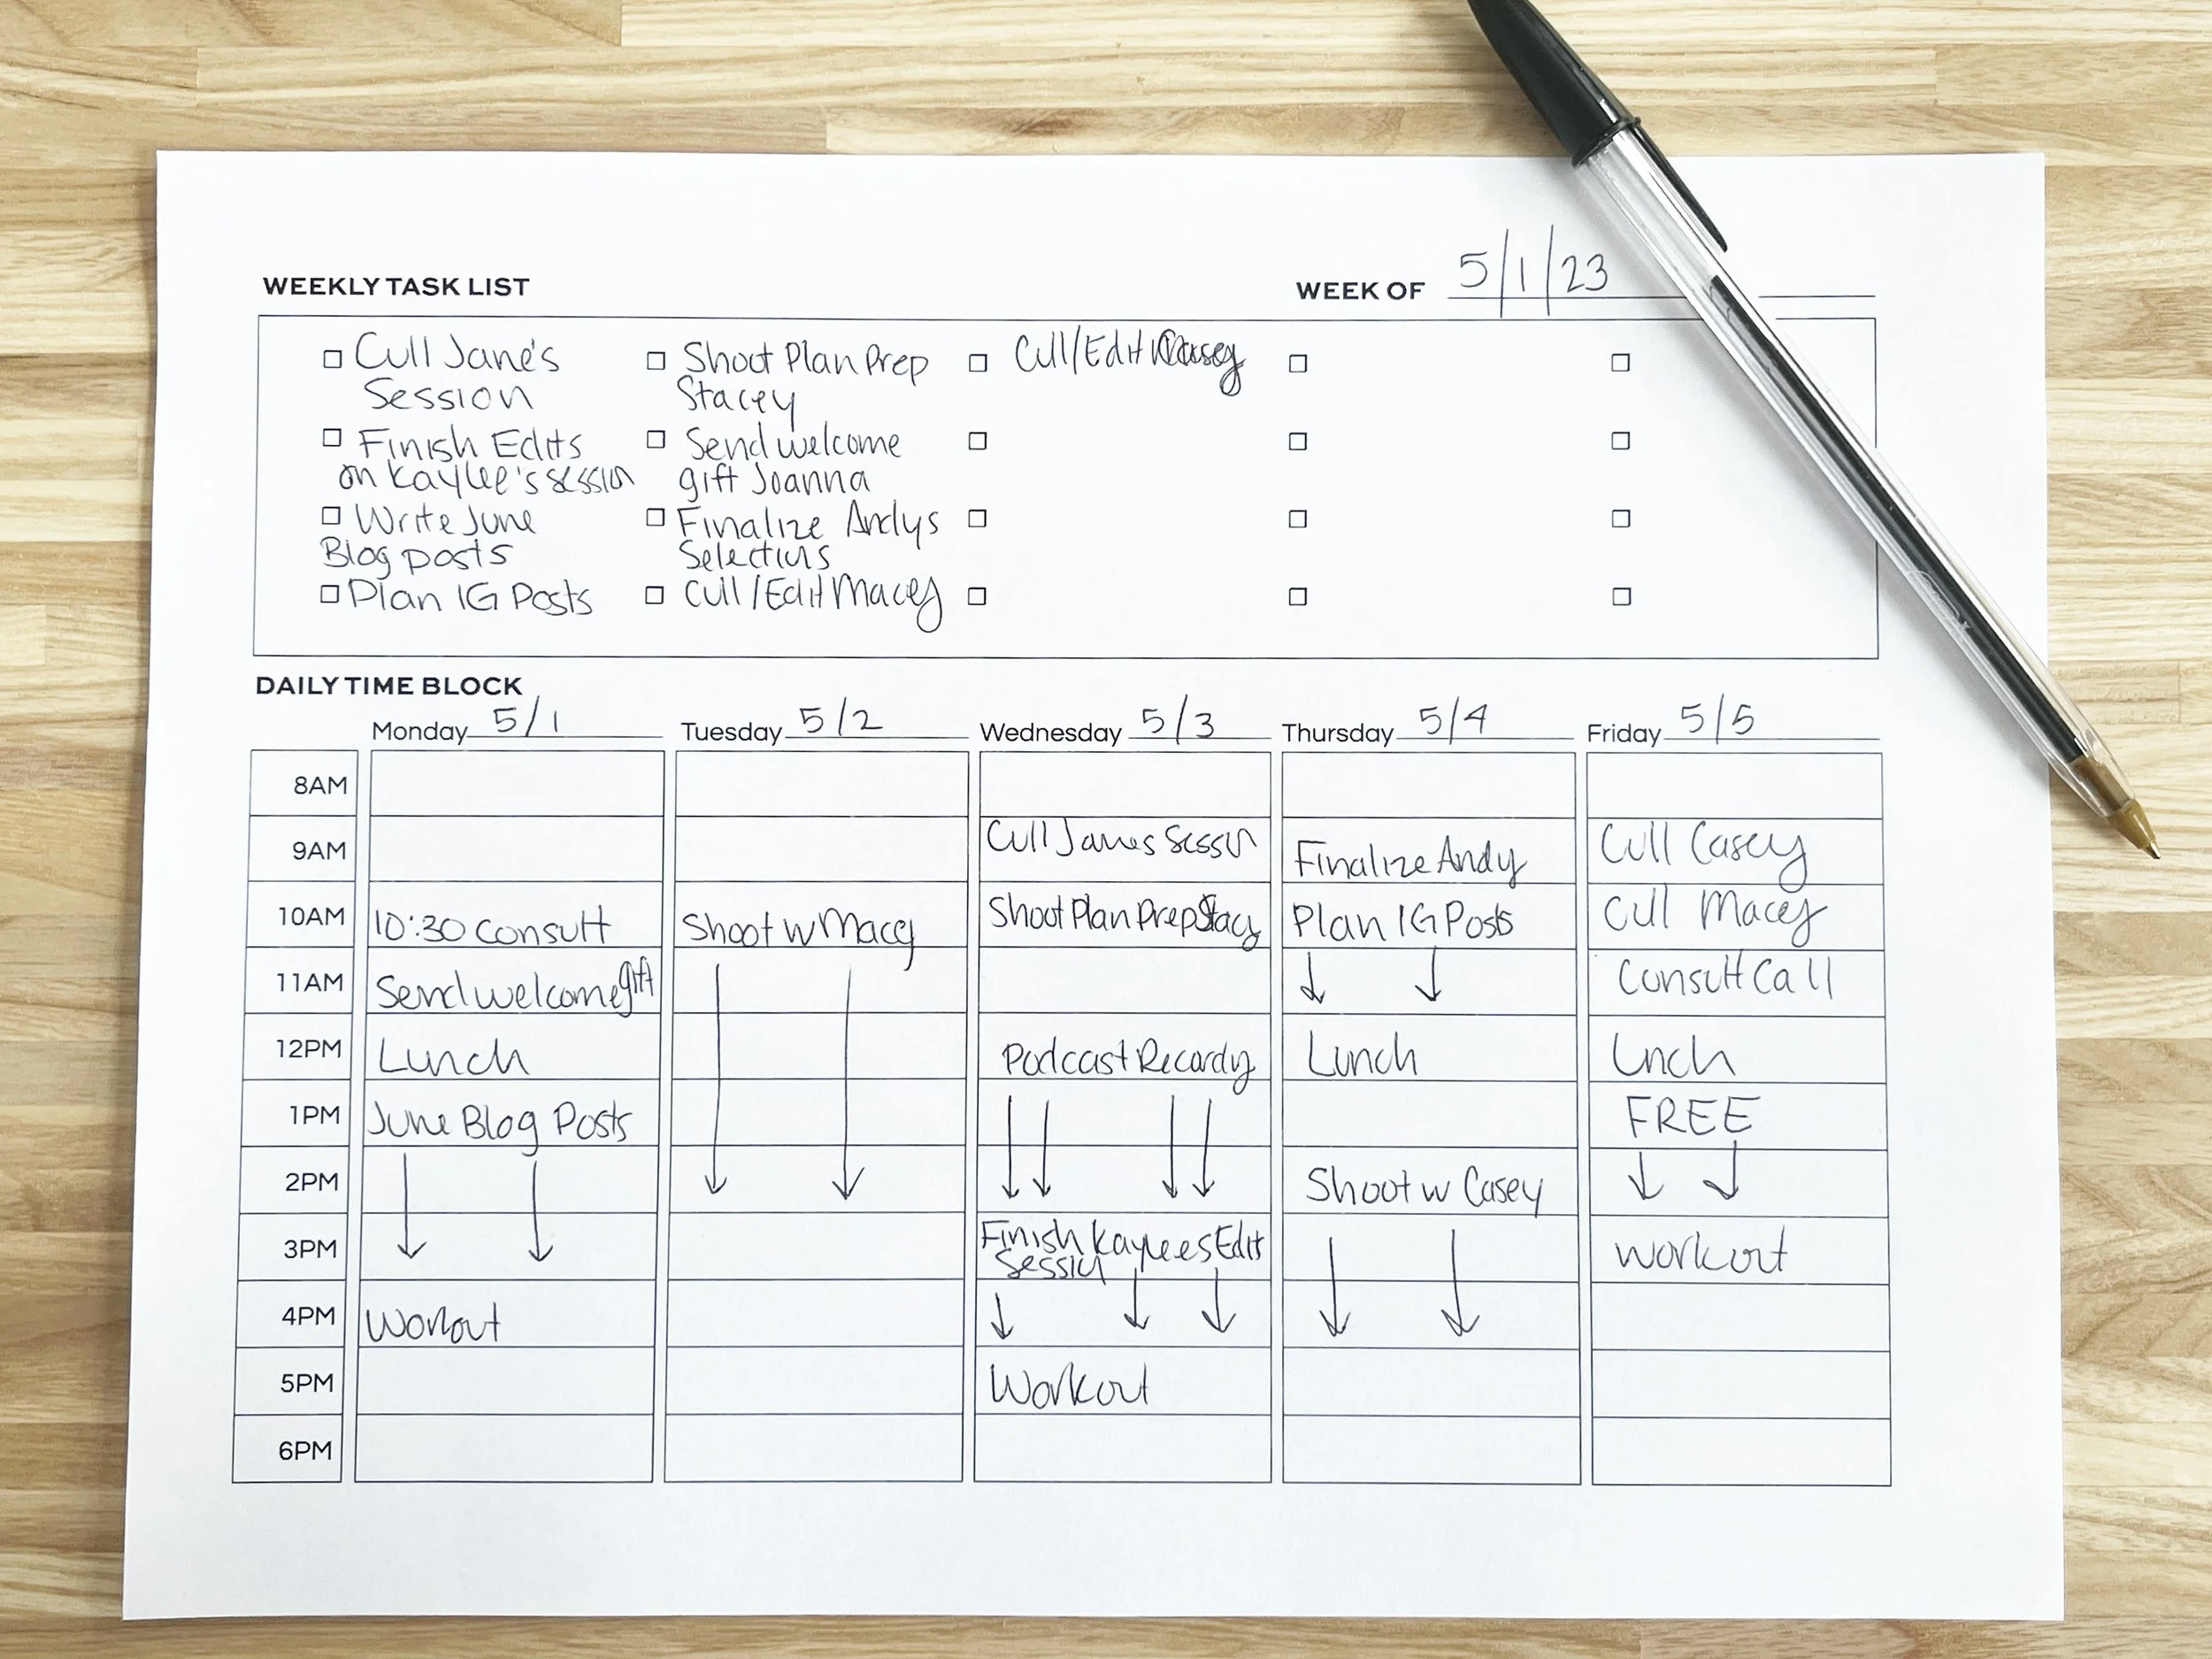 WEEKLY TASK LIST
WEEK OF 5/1/23
Cull Jane's
Session
Finish Edits
on Kaylee's session
Write June
Blog posts
Plan IG Posts
Shoot Plan Prep
Stacey
Send welcome
gift Joanna
Finalize Andys
Selections
Cull/Edit Macey
Cull/Edit Casey
DAILY TIME BLOCK
Monday 5/1
Tuesday 5/2
Wednesday 5/3
Thursday 5/4
Friday 5/5
8AM
9AM
Cull Janes Session
Finalize Andy
Cull Casey
10AM
10:30 consult
Shoot w Macey
Shoot Plan Prep Stacy
Plan IG Posts
Cull Macey
11AM
Send welcome gift
Consult Call
12PM
Lunch
Podcast Recording
Lunch
Lnch
1PM
June Blog Posts
FREE
2PM
Shoot w Casey
3PM
Finish Kaylees Edit
Session
workout
4PM
Workout
5PM
Workout
6PM